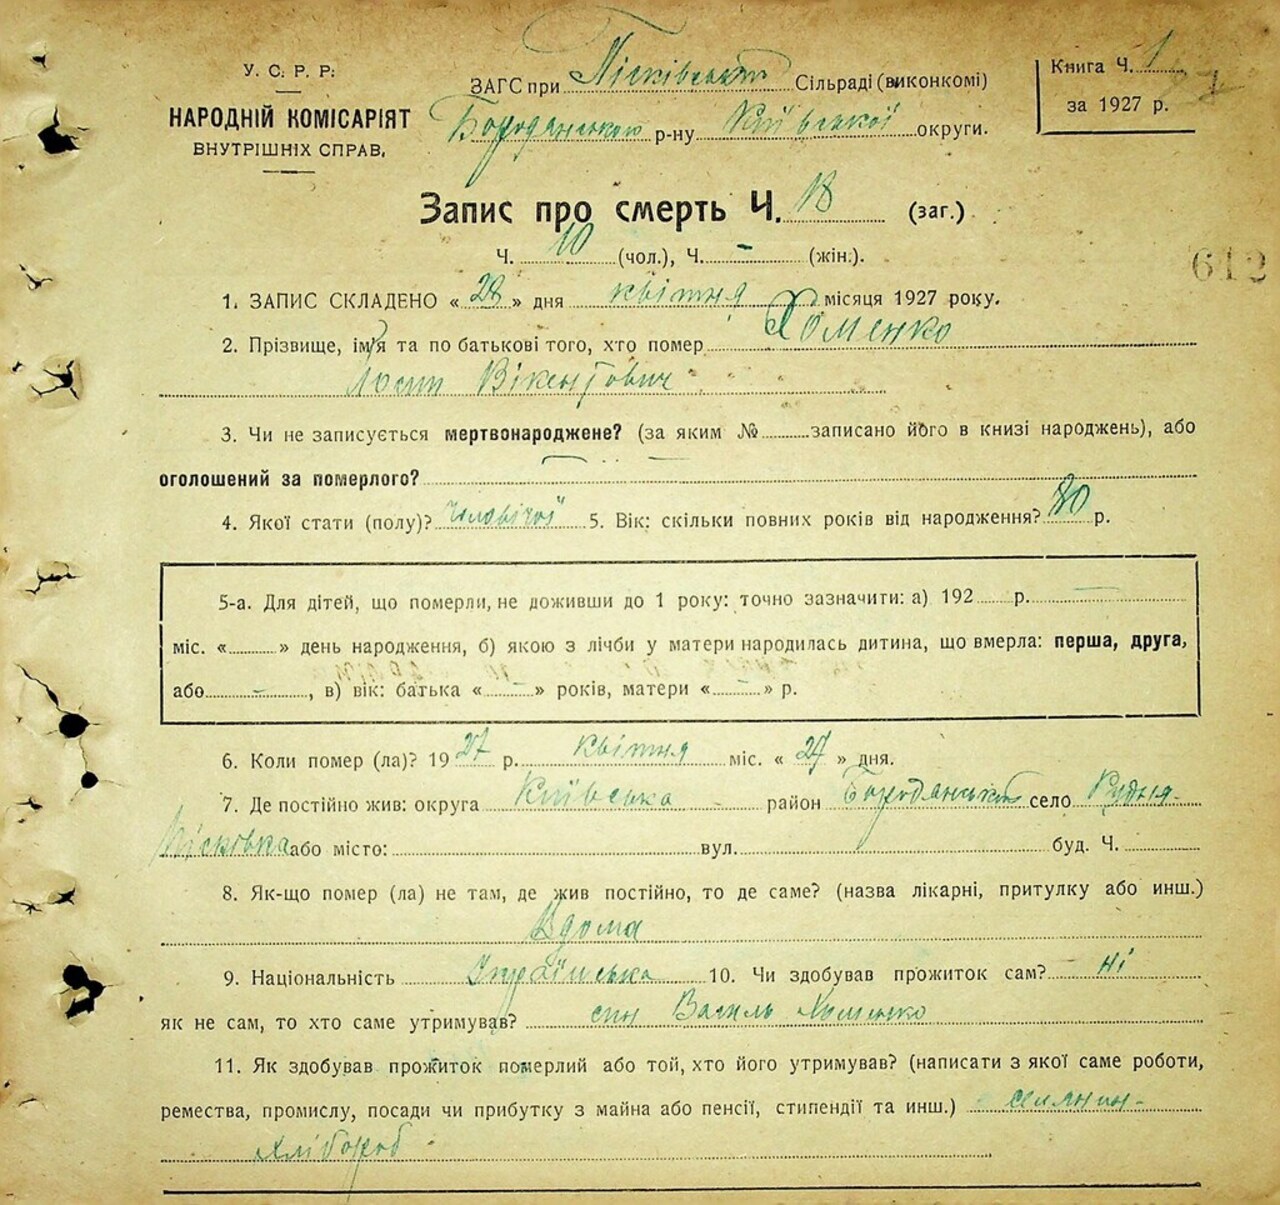 У. С. Р. Р.
НАРОДНІЙ КОМІСАРІЯТ
ВНУТРІШНІХ СПРАВ.
ЗАГС при Пісківській Сільраді (виконкомі)
Бородянського р-ну Київської округи.
Книга Ч. 1
за 1927 р.
Запис про смерть Ч. 18 (заг.)
Ч. 10 (чол.), Ч. - (жін.).
612
1. ЗАПИС СКЛАДЕНО « 28 » дня квітня місяця 1927 року.
2. Прізвище, ім'я та по батькові того, хто помер Хоменко
Йосип Вікентович
3. Чи не записується мертвонароджене? (за яким № записано його в книзі народжень), або
оголошений за померлого?
4. Якої стати (полу)? Чоловічої 5. Вік: скільки повних років від народження? 80 р.
5-а. Для дітей, що померли, не доживши до 1 року: точно зазначити: а) 192 р.
міс. « » день народження, б) якою з лічби у матери народилась дитина, що вмерла: перша, друга,
або - , в) вік: батька « - » років, матери « - » р.
6. Коли помер (ла)? 1927 р. квітня міс. « 27 » дня.
7. Де постійно жив: округа Київська район Бородянський село Рудня-
Пісковка або місто: вул. буд. Ч.
8. Як-що помер (ла) не там, де жив постійно, то де саме? (назва лікарні, притулку або инш.)
Вдома
9. Національність Українська 10. Чи здобував прожиток сам? ні
як не сам, то хто саме утримував? син Василь Хоменко
11. Як здобував прожиток померлий або той, хто його утримував? (написати з якої саме роботи,
ремества, промислу, посади чи прибутку з майна або пенсії, стипендії та инш.) селянин-
хлібороб